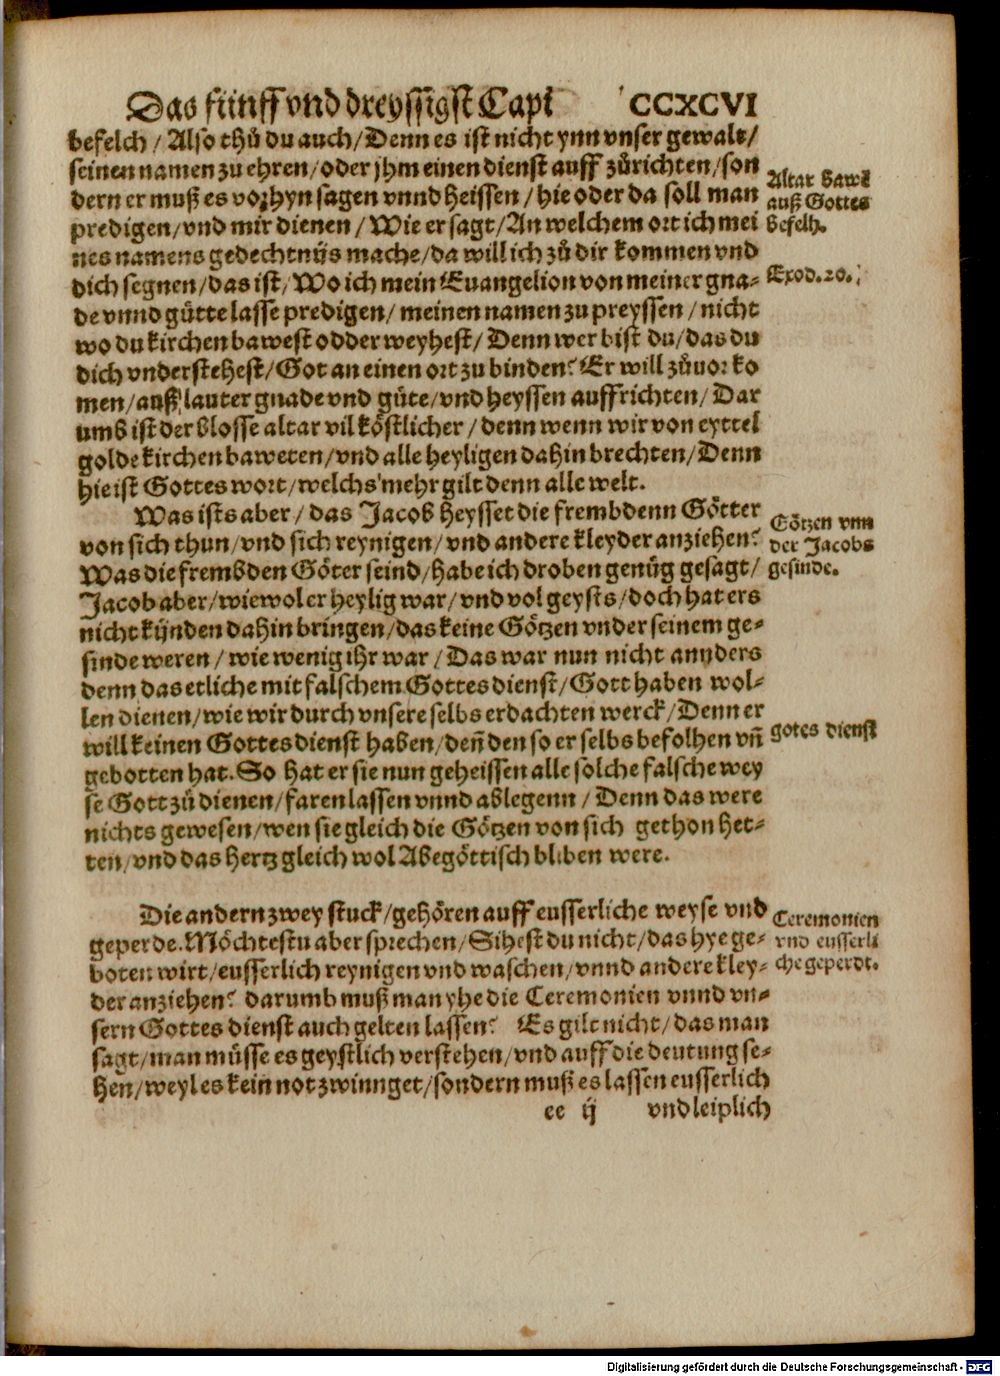 Das fünff vnd dreyssigst Capi CCXCVI
befelch / Also thů du auch / Denn es ist nicht ynn vnser gewalt /
seinen namen zu ehren / oder jhm einen dienst auff zůrichten / son
dern er muß es vorhyn sagen vnnd heissen / hie oder da soll man
predigen / vnd mir dienen / Wie er sagt / An welchem ort ich mei
nes namens gedechtnijs mache / da will ich zů dir kommen vnd
dich segnen / das ist / Wo ich mein Euangelion von meiner gna-
de vnnd gütte lasse predigen / meinen namen zu preyssen / nicht
wo du kirchen bawest odder weyhest / Denn wer bist du / das du
dich vnderstehest / Got an einen ort zu binden? Er will zůuor ko
men / auß lauter gnade vnd güte / vnd heyssen auffrichten / Dar
umb ist der blosse altar vil köstlicher / denn wenn wir von eyttel
golde kirchen baweten / vnd alle heyligen dahin brechten / Denn
hie ist Gottes wort / welchs mehr gilt denn alle welt.
Altar bawt
auß Gottes
befelh.
Exod. 20.
Was ists aber / das Jacob heysset die frembdenn Götter
von sich thun / vnd sich reynigen / vnd andere kleyder anziehen?
Was die frembden Göter seind / habe ich droben genůg gesagt /
Jacob aber / wiewol er heylig war / vnd vol geysts / doch hat ers
nicht kijnden dahin bringen / das keine Götzen vnder seinem ge-
sinde weren / wie wenig ihr war / Das war nun nicht annders
denn das etliche mit falschem Gottesdienst / Gott haben wol-
len dienen / wie wir durch vnsere selbs erdachten werck / Denn er
will keinen Gottesdienst haben / deñ den so er selbs befolhen vñ
gebotten hat. So hat er sie nun geheissen alle solche falsche wey
se Gott zů dienen / faren lassen vnnd ablegenn / Denn das were
nichts gewesen / wen sie gleich die Götzen von sich gethon het-
ten / vnd das hertz gleich wol Abegöttisch bliben were.
Götzen vnn
der Jacobs
gesinde.
gotes dienst
Die andern zwey stuck / gehören auff eusserliche weyse vnd
geperde. Möchtestu aber sprechen / Sihest du nicht / das hye ge-
boten wirt / eusserlich reynigen vnd waschen / vnnd andere kley-
der anziehen? darumb muß man yhe die Ceremonien vnnd vn-
sern Gottes dienst auch gelten lassen? Es gilt nicht / das man
sagt / man müsse es geystlich verstehen / vnd auff die deutung se-
hen / weyl es kein not zwinnget / sondern muß es lassen eusserlich
Ceremonien
vnd eusserli
che geperdt.
ee ij vnd leiplich
Digitalisierung gefördert durch die Deutsche Forschungsgemeinschaft - DFG